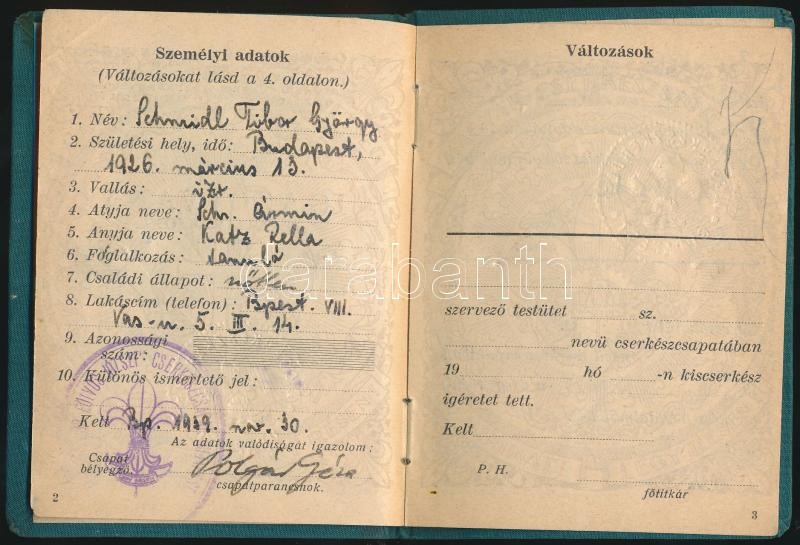 Személyi adatok
(Változásokat lásd a 4. oldalon.)
1. Név: Schmidl Tibor György
2. Születési hely, idő: Budapest,
1926. március 13.
3. Vallás: izr.
4. Atyja neve: Sch. Ármin
5. Anyja neve: Katz Bella
6. Foglalkozás: tanuló
7. Családi állapot: nőtlen
8. Lakáscím (telefon): Bpest. VIII.
Vas-u. 5. III. 14.
9. Azonossági
szám:
10. Különös ismertető jel:
Kelt Bp. 1939. nov. 30.
Az adatok valódiságát igazolom:
Csapat
bélyegző.
Polgár Géza
csapatparancsnok.
2
Változások
szervező testület sz.
nevü cserkészcsapatában
19 hó -n kiscserkész
igéretet tett.
Kelt
P. H.
főtitkár
3
darabanth